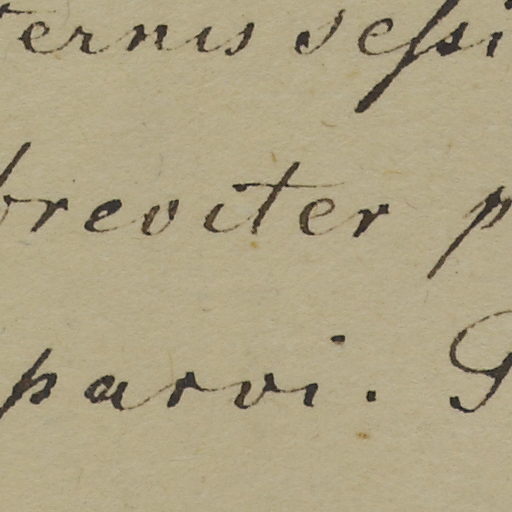 ternis sessi
breviter p
parvi. G